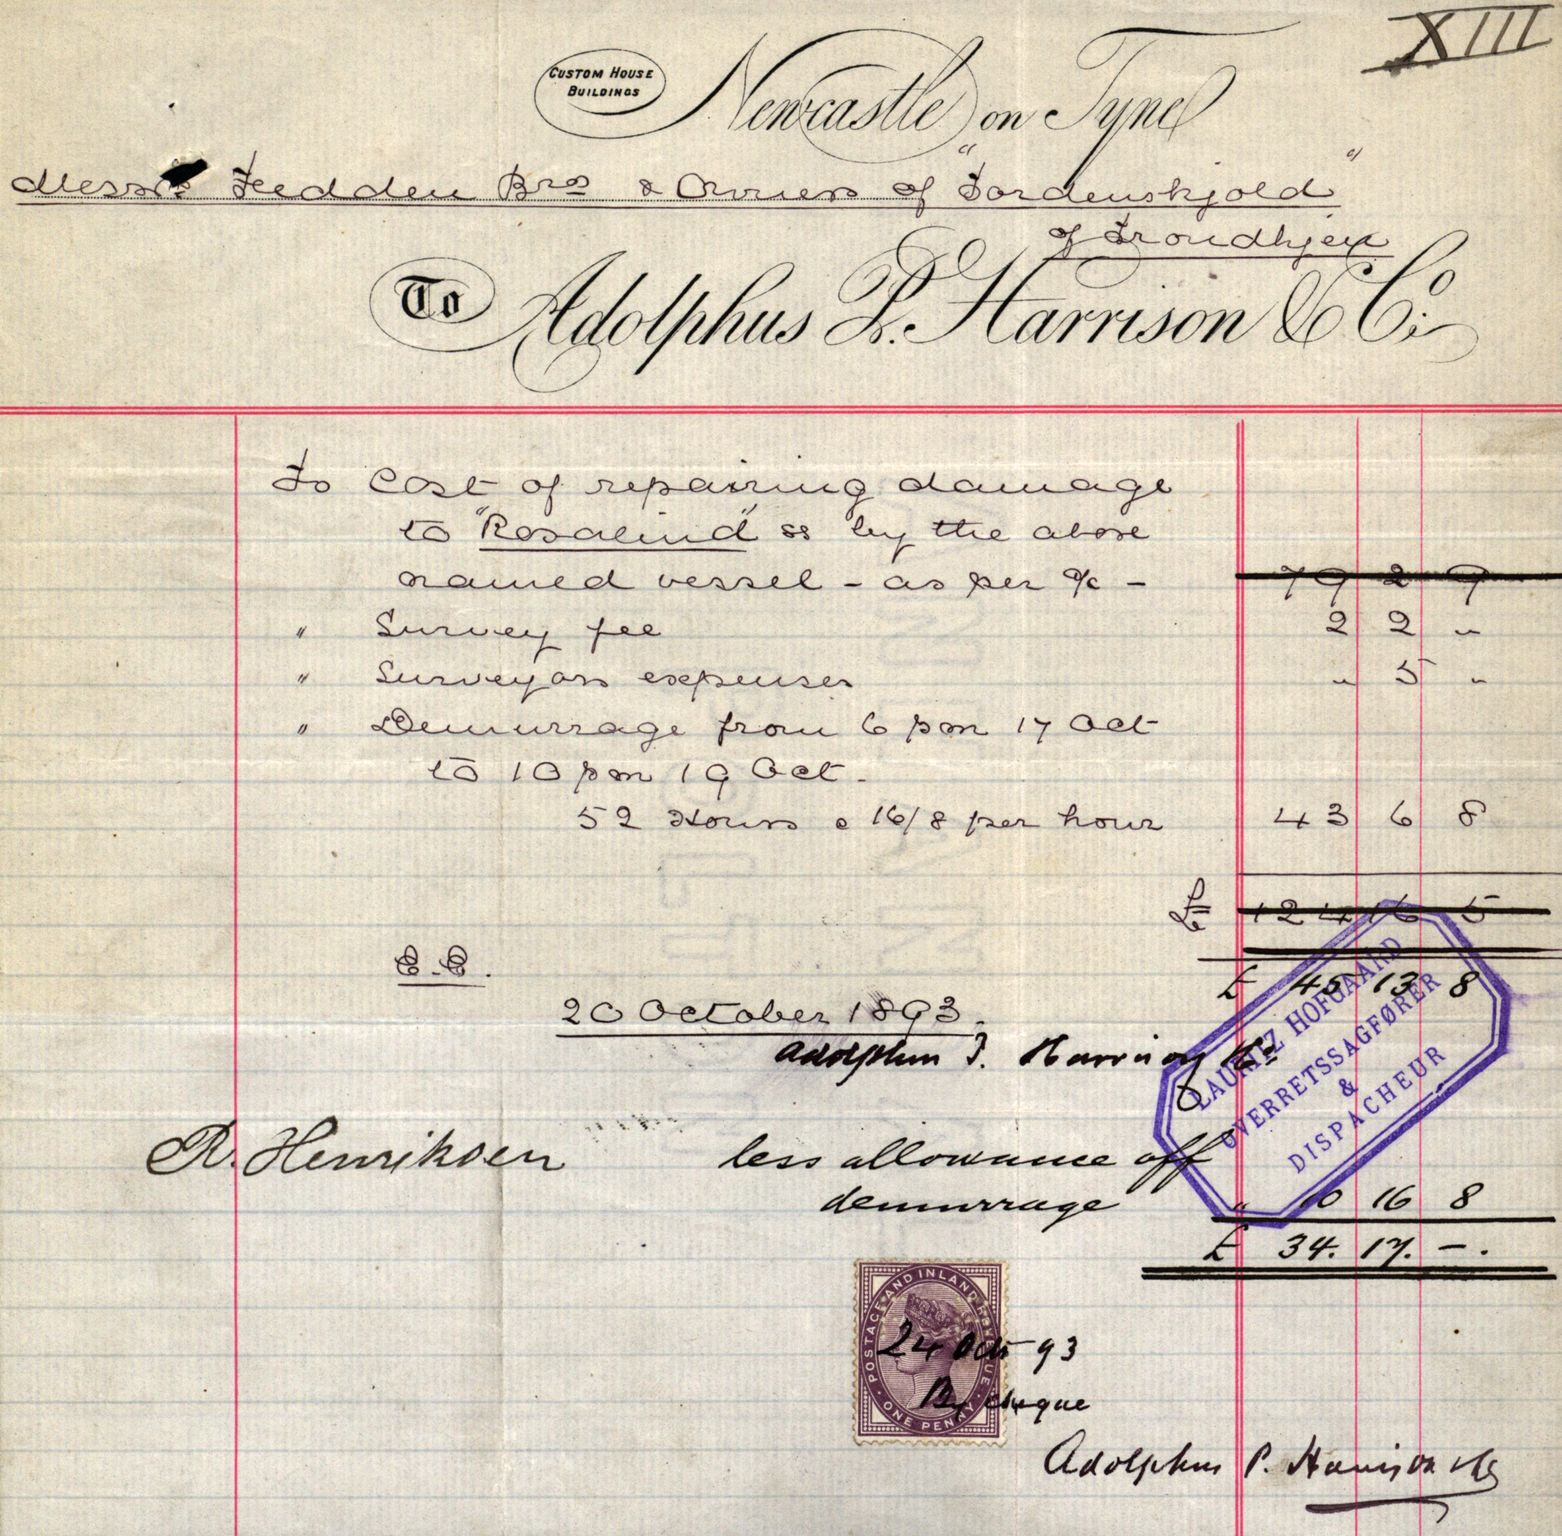 XIII
CUSTOM HOUSE
BUILDINGS
Newcastle on Tyne
Messrs Fedden Bros & Owners of "Tordenskjold"
of Trondhjem
To Adolphus P. Harrison & Co.
To Cost of repairing damage
to "Rosalind" ss by the above
named vessel - as per a/c - 79 2 9
" Survey fee 2 2 "
" Surveyors expenses " 5 "
" Demurrage from 6 pm 17 Oct
to 10 pm 19 Oct.
52 Hours @ 16/8 per hour 43 6 8
£ 124 16 5
E.E.
£ 45 13 8
20 October 1893.
Adolphus P. Harrison & Co
LAURITZ HOFGAARD
OVERRETSSAGFØRER
&
DISPACHEUR
R. Henriksen
less allowance off
demurrage " 10 16 8
£ 34. 17. -.
POSTAGE AND INLAND REVENUE
ONE PENNY
24 Oct 93
By cheque
Adolphus P. Harrison & Co